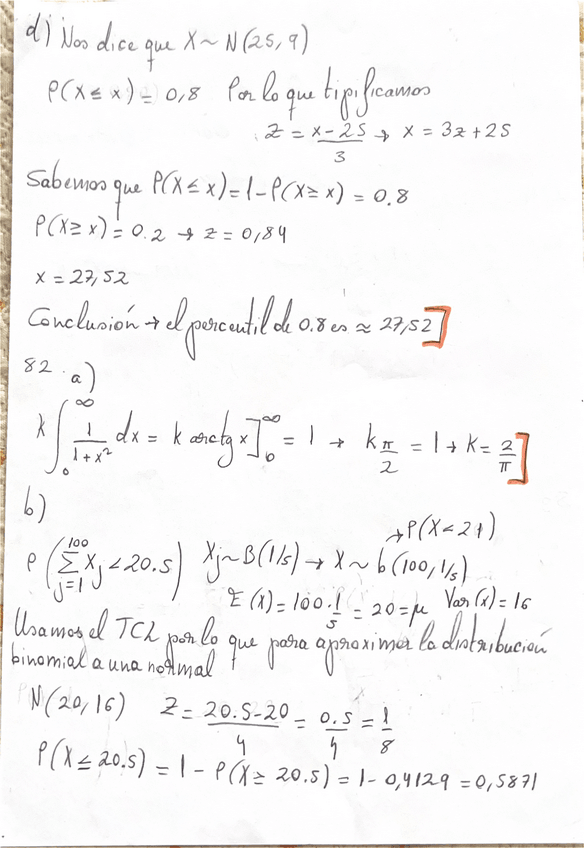 d) Nos dice que X ~ N(25, 9)
P(X ≤ x) = 0,8 Por lo que tipificamos
z = (x - 25)/3 → x = 3z + 25
Sabemos que P(X ≤ x) = 1 - P(X ≥ x) = 0.8
P(X ≥ x) = 0.2 → z = 0,84
x = 27,52
Conclusión → el percentil de 0.8 es ≈ 27,52]
82. a)
k ∫₀^∞ 1/(1+x²) dx = k arctg x]₀^∞ = 1 → k π/2 = 1 → k = 2/π]
b)
→ P(X < 21)
P(∑_{j=1}^{100} Xj < 20.5) Xj ~ B(1/5) → X ~ b(100, 1/5)
E(X) = 100 · 1/5 = 20 = μ Var(x) = 16
Usamos el TCL por lo que para aproximar la distribución
binomial a una normal
N(20, 16) Z = (20.5 - 20)/4 = 0.5/4 = 1/8
P(X ≤ 20.5) = 1 - P(X ≥ 20.5) = 1 - 0,4129 = 0,5871